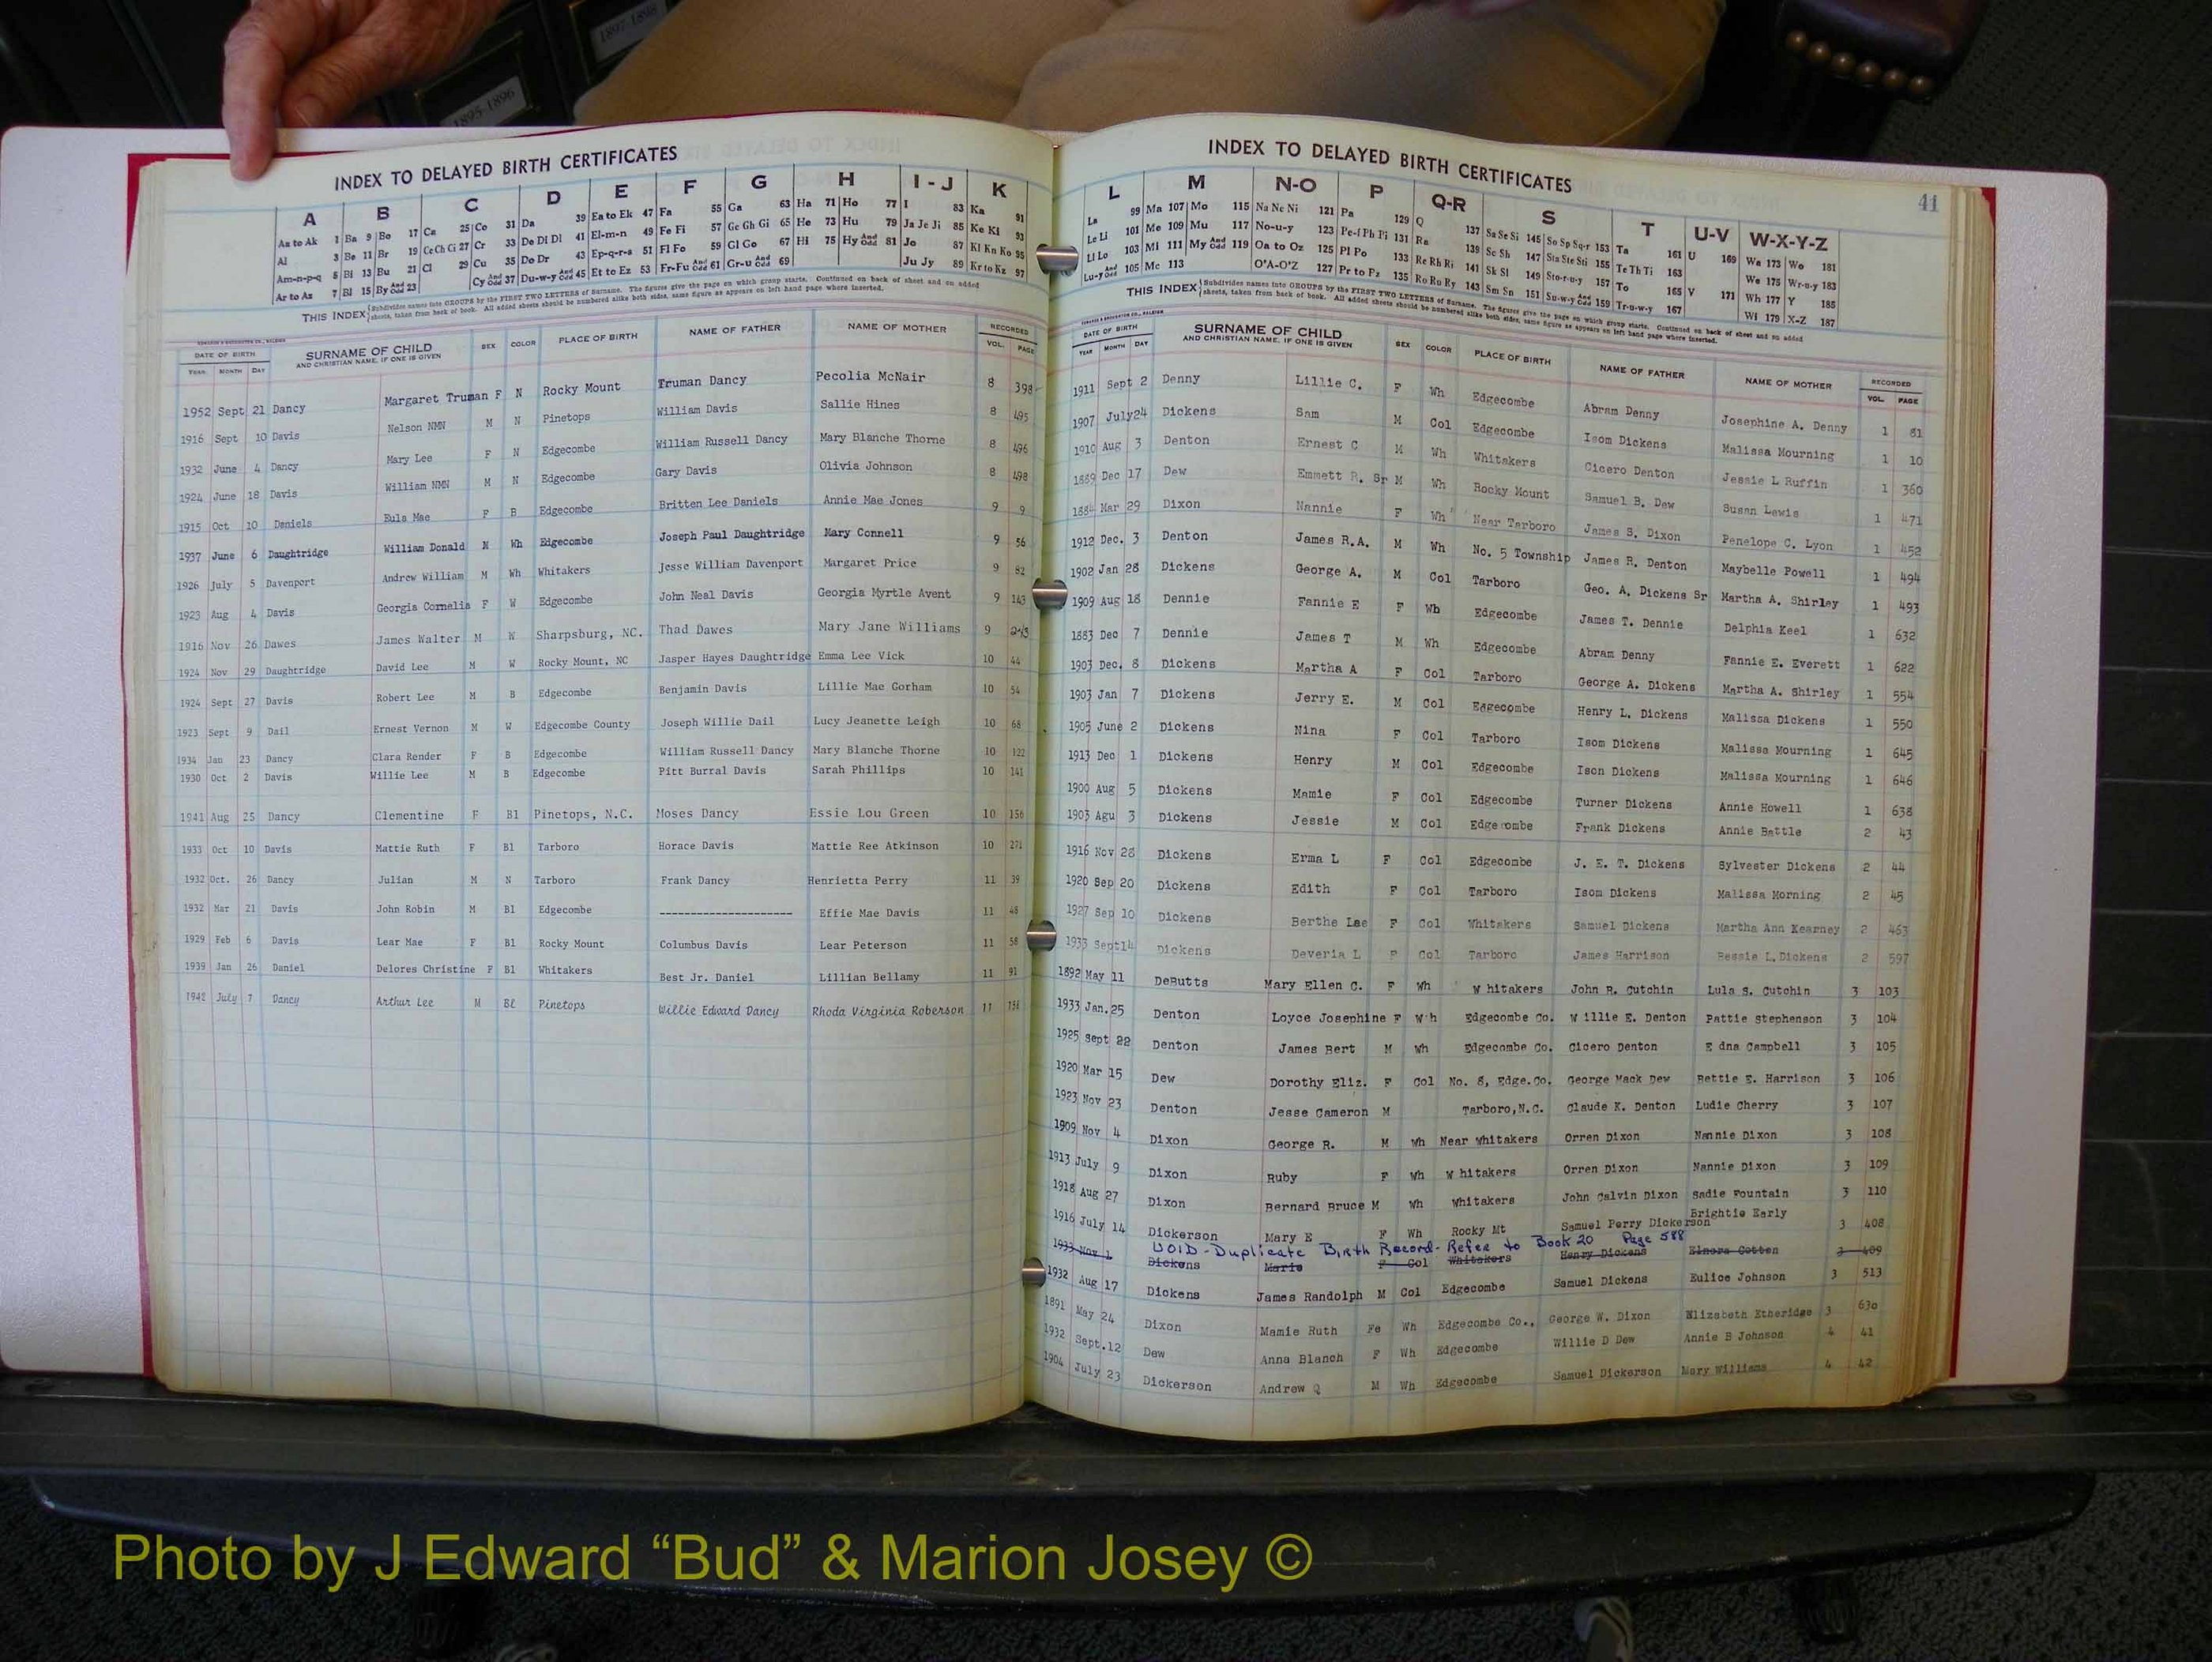 1897-1898
1895-1896
INDEX TO DELAYED BIRTH CERTIFICATES
A B C D E F G H I - J K
Aa to Ak 1 Ba 9 Bo 17 Ca 25 Co 31 Da 39 Ea to Ek 47 Fa 55 Ga 63 Ha 71 Ho 77 I 83 Ka 91
Al 3 Be 11 Br 19 Ce Ch Ci 27 Cr 33 De Di Dl 41 El-m-n 49 Fe Fi 57 Ge Gh Gi 65 He 73 Hu 79 Ja Je Ji 85 Ke Kl 93
Am-n-p-q 5 Bi 13 Bu 21 Cl 29 Cu 35 Do Dr 43 Ep-q-r-s 51 Fl Fo 59 Gl Go 67 Hi 75 Hy And Odd 81 Jo 87 Kl Kn Ko 95
Ar to Az 7 Bl 15 By And Odd 23 Cy And Odd 37 Du-w-y And Odd 45 Et to Ez 53 Fr-Fu And Odd 61 Gr-u And Odd 69 Ju Jy 89 Kr to Kz 97
THIS INDEX Subdivides names into GROUPS by the FIRST TWO LETTERS of Surname. The figures give the page on which group starts. Continued on back of sheet and on added
sheets, taken from back of book. All added sheets should be numbered alike both sides, same figure as appears on left hand page where inserted.
DATE OF BIRTH SURNAME OF CHILD SEX COLOR PLACE OF BIRTH NAME OF FATHER NAME OF MOTHER RECORDED
YEAR MONTH DAY AND CHRISTIAN NAME, IF ONE IS GIVEN VOL. PAGE
1952 Sept 21 Dancy Margaret Truman F N Rocky Mount Truman Dancy Pecolia McNair 8 398
1916 Sept 10 Davis Nelson NMN M N Pinetops William Davis Sallie Hines 8 495
1932 June 4 Dancy Mary Lee F N Edgecombe William Russell Dancy Mary Blanche Thorne 8 496
1924 June 18 Davis William NMN M N Edgecombe Gary Davis Olivia Johnson 8 498
1915 Oct 10 Daniels Eula Mae F B Edgecombe Britten Lee Daniels Annie Mae Jones 9 9
1937 June 6 Daughtridge William Donald M Wh Edgecombe Joseph Paul Daughtridge Mary Connell 9 56
1926 July 5 Davenport Andrew William M Wh Whitakers Jesse William Davenport Margaret Price 9 82
1923 Aug 4 Davis Georgia Cornelia F W Edgecombe John Neal Davis Georgia Myrtle Avent 9 143
1916 Nov 26 Dawes James Walter M W Sharpsburg, NC. Thad Dawes Mary Jane Williams 9
1924 Nov 29 Daughtridge David Lee M W Rocky Mount, NC Jasper Hayes Daughtridge Emma Lee Vick 10 44
1924 Sept 27 Davis Robert Lee M B Edgecombe Benjamin Davis Lillie Mae Gorham 10 54
1923 Sept 9 Dail Ernest Vernon M W Edgecombe County Joseph Willie Dail Lucy Jeanette Leigh 10 68
1934 Jan 23 Dancy Clara Render F B Edgecombe William Russell Dancy Mary Blanche Thorne 10 122
1930 Oct 2 Davis Willie Lee M B Edgecombe Pitt Burral Davis Sarah Phillips 10 141
1941 Aug 25 Dancy Clementine F Bl Pinetops, N.C. Moses Dancy Essie Lou Green 10 156
1933 Oct 10 Davis Mattie Ruth F Bl Tarboro Horace Davis Mattie Ree Atkinson 10 271
1932 Oct. 26 Dancy Julian M N Tarboro Frank Dancy Henrietta Perry 11 39
1932 Mar 21 Davis John Robin M Bl Edgecombe ---------------------- Effie Mae Davis 11 48
1929 Feb 6 Davis Lear Mae F Bl Rocky Mount Columbus Davis Lear Peterson 11 58
1939 Jan 26 Daniel Delores Christine F Bl Whitakers Best Jr. Daniel Lillian Bellamy 11 91
1942 July 7 Dancy Arthur Lee M Bl Pinetops Willie Edward Dancy Rhoda Virginia Roberson 11
INDEX TO DELAYED BIRTH CERTIFICATES 41
L M N-O P Q-R S T U-V W-X-Y-Z
La 99 Ma 107 Mo 115 Na Ne Ni 121 Pa 129 Q 137 Sa Se Si 145 So Sp Sq-r 153 Ta 161 U 169 Wa 173 Wo 181
Le Li 101 Me 109 Mu 117 No-u-y 123 Pe-f Ph Pi 131 Ra 139 Sc Sh 147 Sta Ste Sti 155 Te Th Ti 163 We 175 Wr-u-y 183
Ll Lo 103 Mi 111 My And Odd 119 Oa to Oz 125 Pl Po 133 Re Rh Ri 141 Sk Sl 149 Sto-r-u-y 157 To 165 V 171 Wh 177 Y 185
Lu-y And Odd 105 Mc 113 O'A-O'Z 127 Pr to Pz 135 Ro Ru Ry 143 Sm Sn 151 Su-w-y And Odd 159 Tr-u-w-y 167 Wi 179 X-Z 187
THIS INDEX Subdivides names into GROUPS by the FIRST TWO LETTERS of Surname. The figures give the page on which group starts. Continued on back of sheet and on added
sheets, taken from back of book. All added sheets should be numbered alike both sides, same figure as appears on left hand page where inserted.
DATE OF BIRTH SURNAME OF CHILD SEX COLOR PLACE OF BIRTH NAME OF FATHER NAME OF MOTHER RECORDED
YEAR MONTH DAY AND CHRISTIAN NAME, IF ONE IS GIVEN VOL. PAGE
1911 Sept 2 Denny Lillie C. F Wh Edgecombe Abram Denny Josephine A. Denny 1 81
1907 July 24 Dickens Sam M Col Edgecombe Isom Dickens Malissa Mourning 1 10
1910 Aug 3 Denton Ernest C M Wh Whitakers Cicero Denton Jessie L Ruffin 1 360
1889 Dec 17 Dew Emmett R. Sr M Wh Rocky Mount Samuel B. Dew Susan Lewis 1 471
1884 Mar 29 Dixon Nannie F Wh Near Tarboro James S. Dixon Penelope C. Lyon 1 452
1912 Dec. 3 Denton James R.A. M Wh No. 5 Township James R. Denton Maybelle Powell 1 494
1902 Jan 28 Dickens George A. M Col Tarboro Geo. A. Dickens Sr Martha A. Shirley 1 493
1909 Aug 18 Dennie Fannie E F Wh Edgecombe James T. Dennie Delphia Keel 1 632
1883 Dec 7 Dennie James T M Wh Edgecombe Abram Denny Fannie E. Everett 1 622
1903 Dec. 8 Dickens Martha A F Col Tarboro George A. Dickens Martha A. Shirley 1 554
1903 Jan 7 Dickens Jerry E. M Col Edgecombe Henry L. Dickens Malissa Dickens 1 550
1905 June 2 Dickens Nina F Col Tarboro Isom Dickens Malissa Mourning 1 645
1913 Dec 1 Dickens Henry M Col Edgecombe Ison Dickens Malissa Mourning 1 646
1900 Aug 5 Dickens Mamie F Col Edgecombe Turner Dickens Annie Howell 1 638
1903 Agu 3 Dickens Jessie M Col Edgecombe Frank Dickens Annie Battle 2 43
1916 Nov 28 Dickens Erma L F Col Edgecombe J. E. T. Dickens Sylvester Dickens 2 44
1920 Sep 20 Dickens Edith F Col Tarboro Isom Dickens Malissa Morning 2 45
1927 Sep 10 Dickens Berthe Lee F Col Whitakers Samuel Dickens Martha Ann Kearney 2 463
1933 Sept14 Dickens Deveria L F Col Tarboro James Harrison Bessie L. Dickens 2 597
1892 May 11 DeButts Mary Ellen C. F Wh W hitakers John R. Cutchin Lula S. Cutchin 3 103
1933 Jan. 25 Denton Loyce Josephine F W h Edgecombe Co. W illie E. Denton Pattie Stephenson 3 104
1925 Sept 22 Denton James Bert M Wh Edgecombe Co. Cicero Denton E dna Campbell 3 105
1920 Mar 15 Dew Dorothy Eliz. F Col No. 8, Edge.Co. George Mack Dew Bettie E. Harrison 3 106
1923 Nov 23 Denton Jesse Cameron M Tarboro,N.C. Claude K. Denton Ludie Cherry 3 107
1909 Nov 4 Dixon George R. M Wh Near Whitakers Orren Dixon Nannie Dixon 3 108
1913 July 9 Dixon Ruby F Wh W hitakers Orren Dixon Nannie Dixon 3 109
1918 Aug 27 Dixon Bernard Bruce M Wh Whitakers John Calvin Dixon Sadie Fountain 3 110
1916 July 14 Dickerson Mary E F Wh Rocky Mt Samuel Perry Dickerson Brightie Early 3 408
VOID - Duplicate Birth Record - Refer to Book 20 Page 588
1933 Nov 1 Dickens Marie F Col Whitakers Henry Dickens Elnora Cotten 3 409
1932 Aug 17 Dickens James Randolph M Col Edgecombe Samuel Dickens Eulice Johnson 3 513
1891 May 24 Dixon Mamie Ruth Fe Wh Edgecombe Co., George W. Dixon Elizabeth Etheridge 3 630
1932 Sept.12 Dew Anna Blanch F Wh Edgecombe Willie D Dew Annie B Johnson 4 41
1904 July 23 Dickerson Andrew Q M Wh Edgecombe Samuel Dickerson Mary Williams 4 42
Photo by J Edward “Bud” & Marion Josey ©